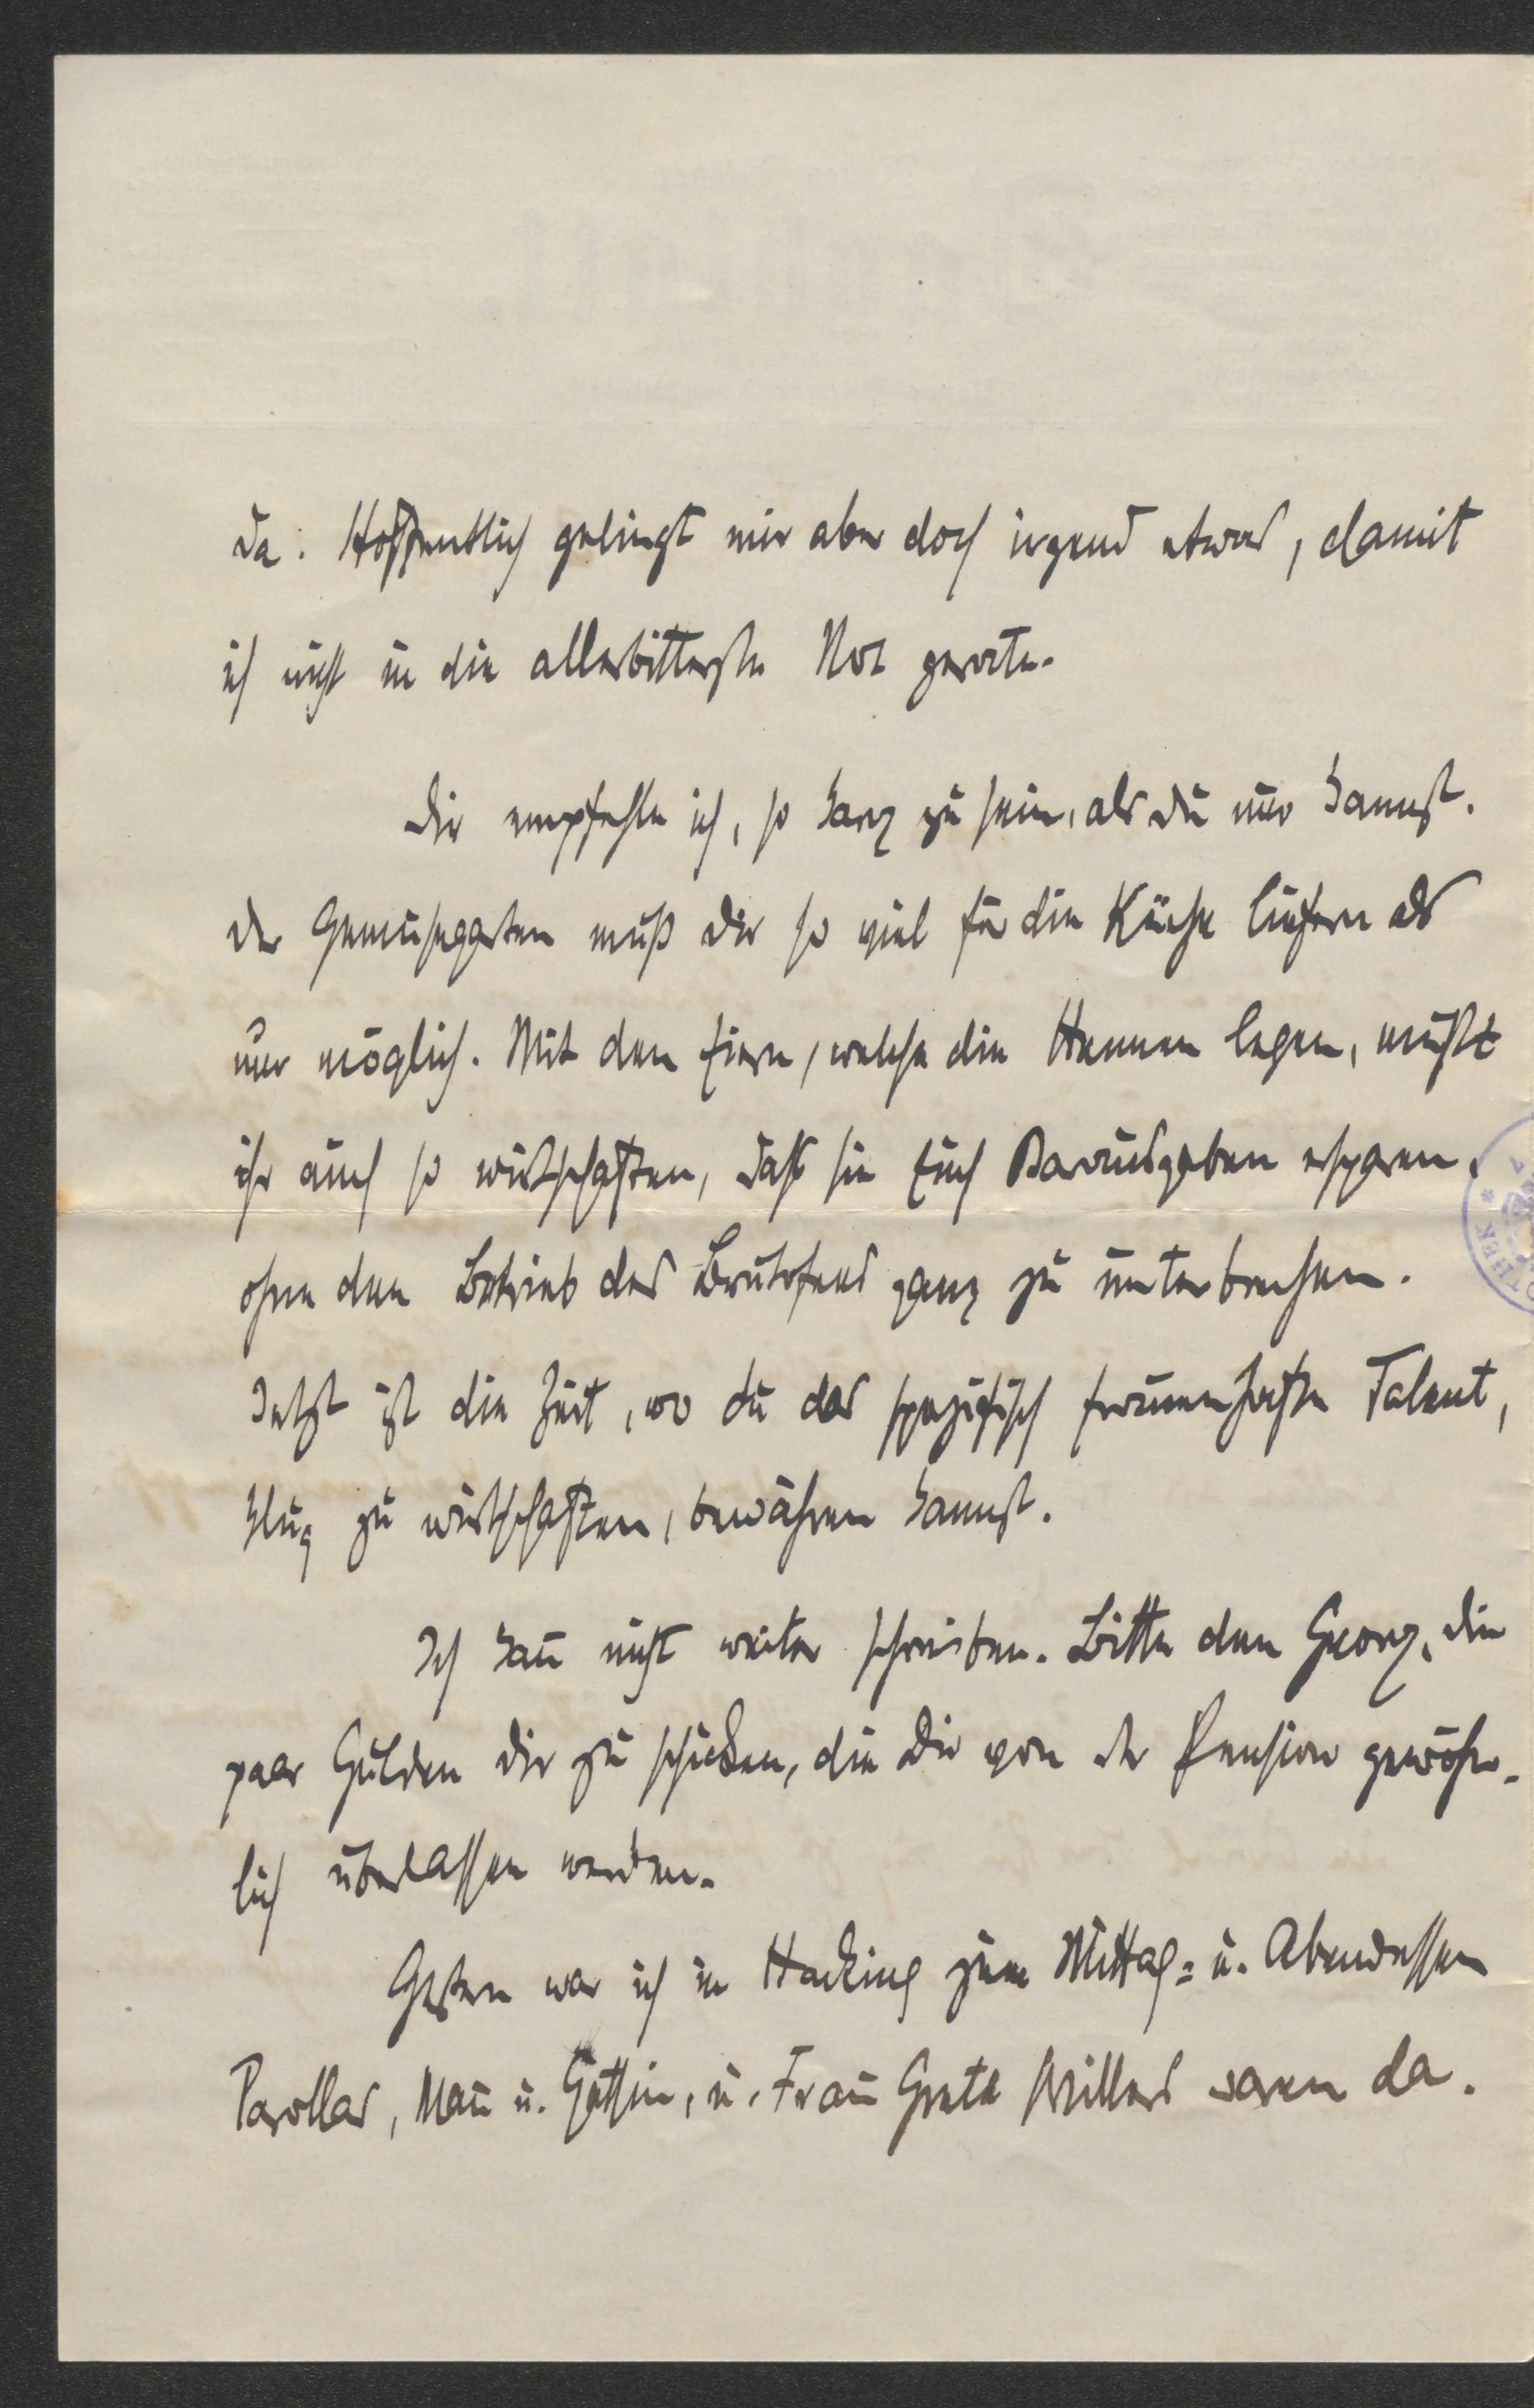 da. Hoffentlich gelingt mir aber doch irgend etwas, damit
ich nicht in die allerbitterste Not gerate.
Dir empfehle ich, so karg zu sein, als du nur kannst.
Der Gemüsegarten muß dir so viel für die Küche liefern als
nur möglich. Mit den Eiern, welche die Hennen legen, müßt
ihr auch so wirtschaften, daß sie Euch Barausgaben ersparen,
ohne den Betrieb des Brutofens ganz zu unterbrechen.
Jetzt ist die Zeit, wo du das spezifisch frauenhafte Talent,
klug zu wirtschaften, bewähren kannst.
Ich kann nicht weiter schreiben. Bitte den Georg, die
paar Gulden dir zu schicken, die Dir von der Pension gewöhn-
lich überlassen werden.
Gestern war ich in Hacking zum Mittag- u. Abendessen
Mann u. Gattin, u. Frau Grete waren da.